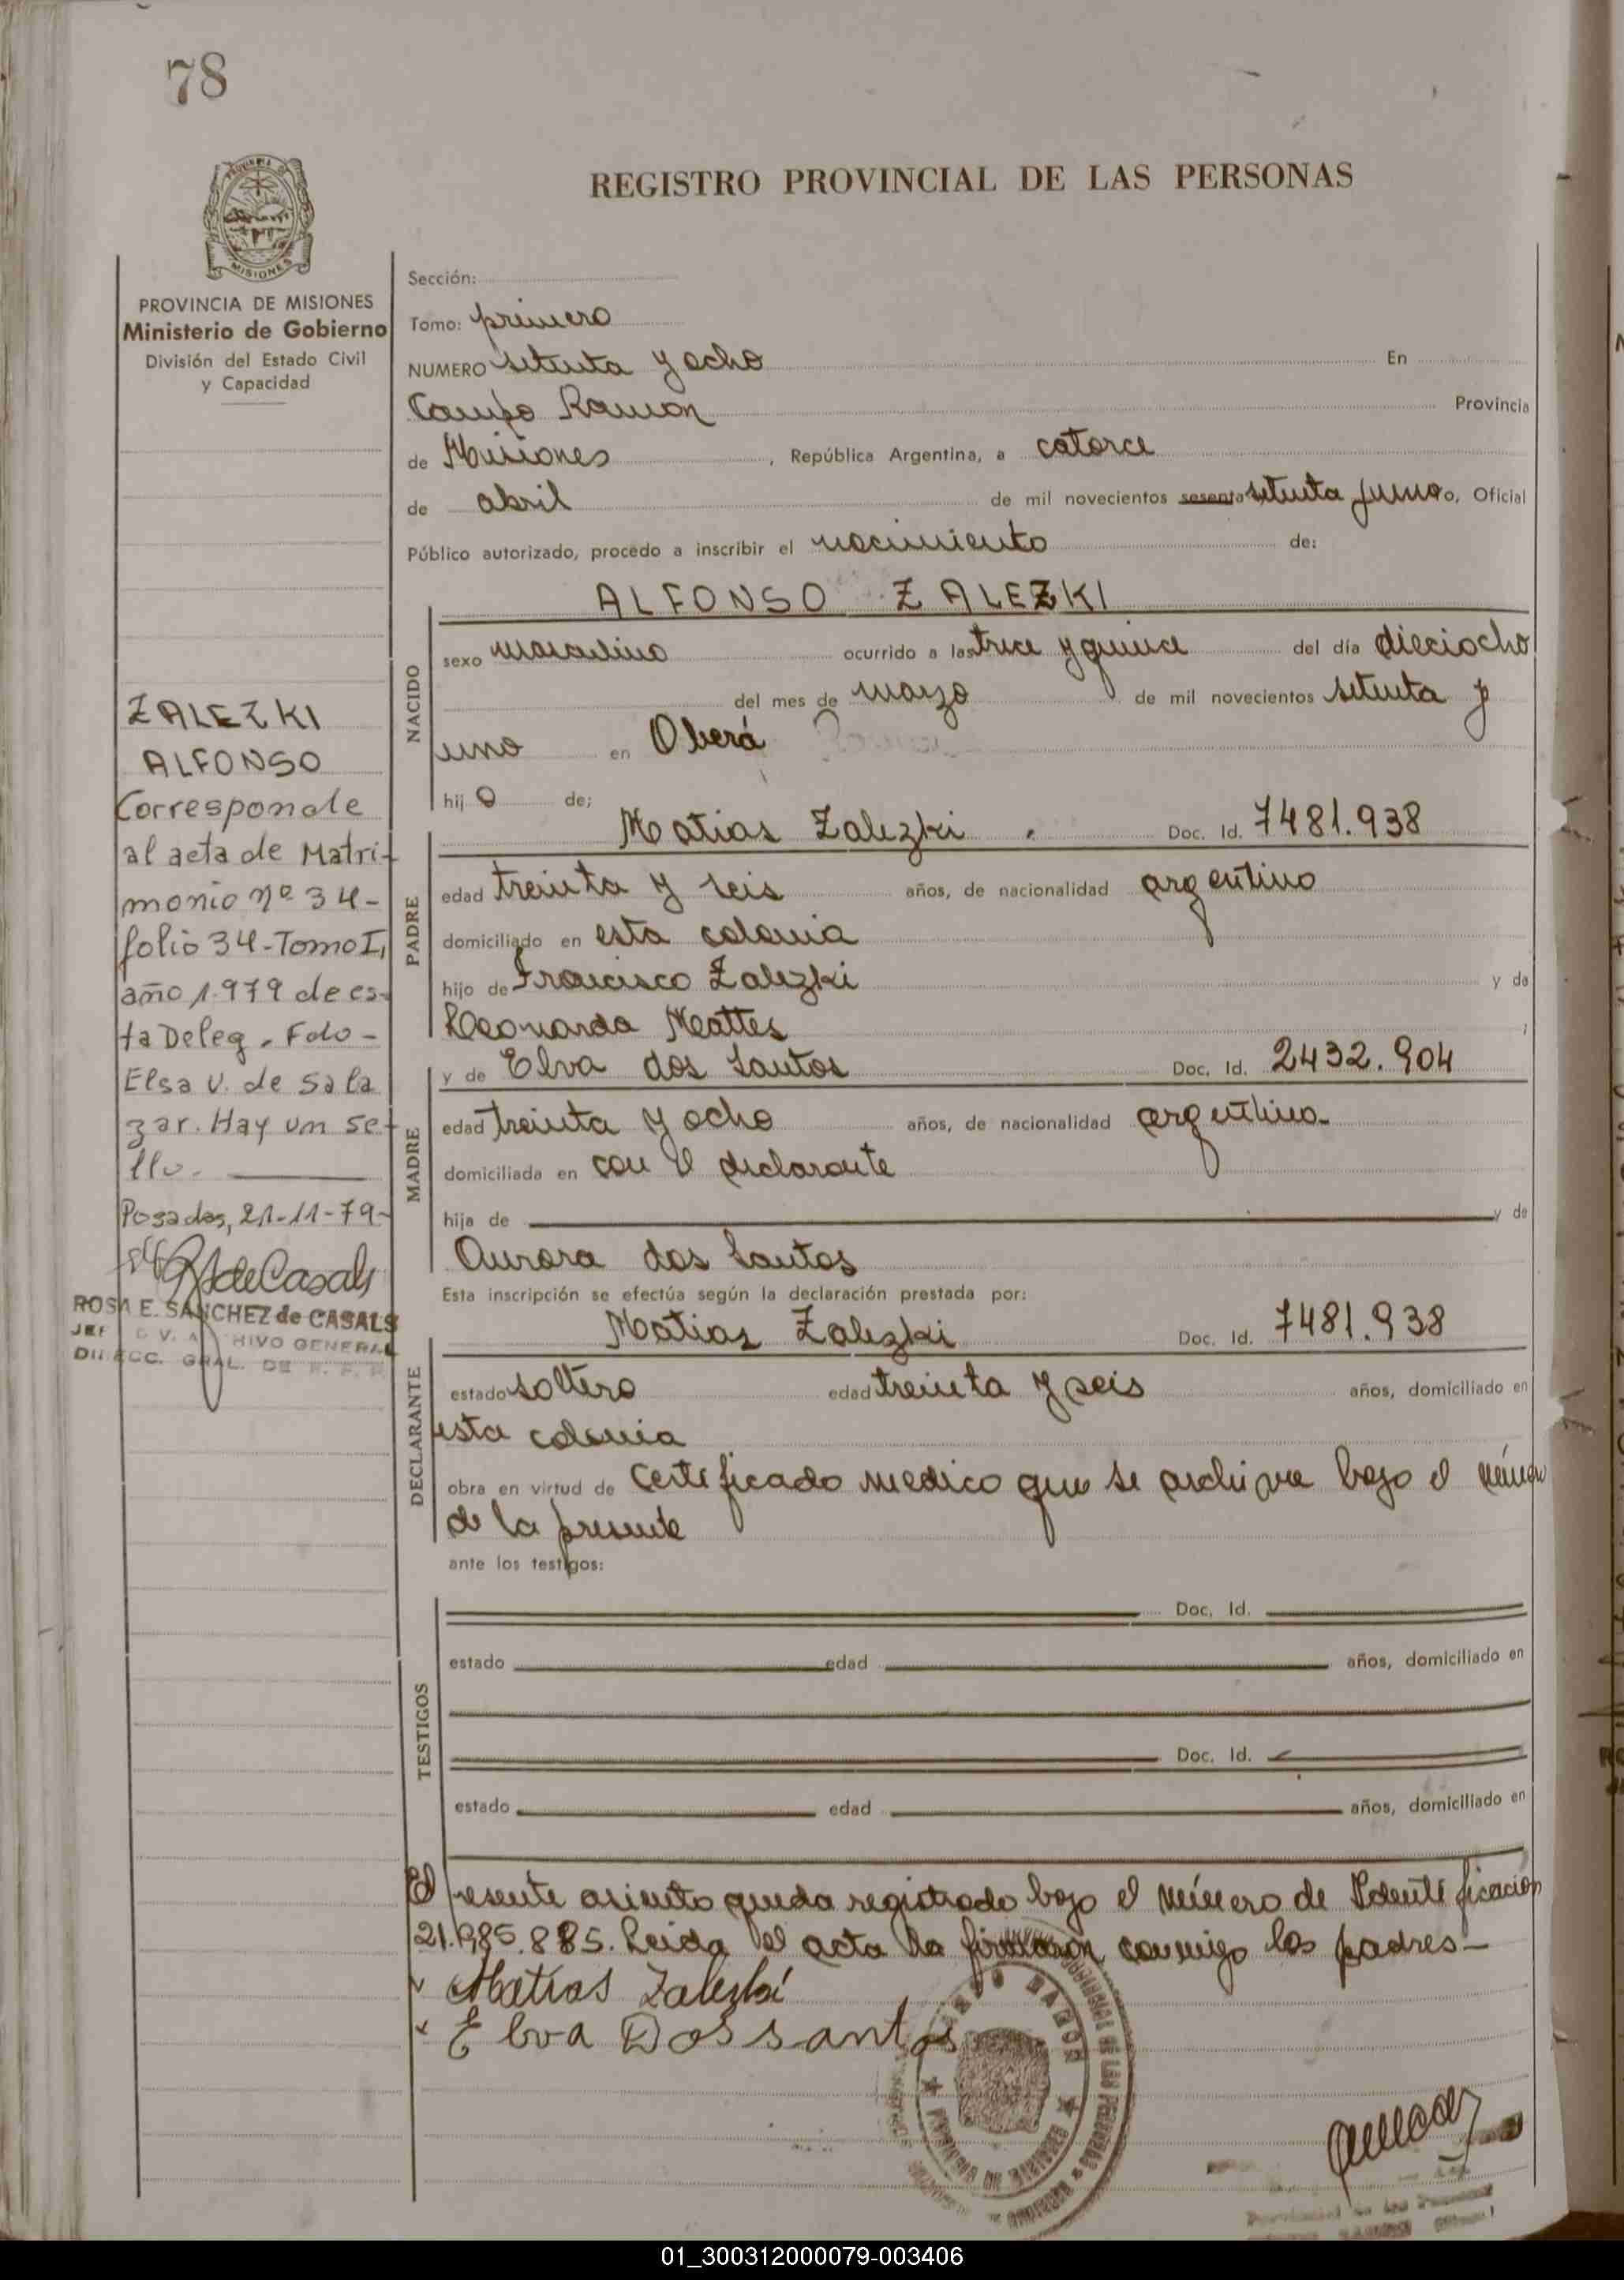 78
REGISTRO PROVINCIAL DE LAS PERSONAS
MISIONES
PROVINCIA DE MISIONES
Ministerio de Gobierno
División del Estado Civil
y Capacidad
Sección:
Tomo: primero
NUMERO setenta y ocho En
Campo Ramon Provincia
de Misiones, República Argentina, a catorce
de abril de mil novecientos sesenta setenta y uno yo, Oficial
Público autorizado, procedo a inscribir el nacimiento de:
ALFONSO ZALEZKI
NACIDO
sexo masculino ocurrido a las trece y quince del día dieciocho
del mes de marzo de mil novecientos setenta y
uno en Oberá
hijo de;
Matias Zalezki Doc. Id. 7481.938
PADRE
edad treinta y seis años, de nacionalidad argentino
domiciliado en esta colonia
hijo de Francisco Zalezki y de
Leonarda Mattes ;
y de Elva dos Santos Doc. Id. 2432.904
MADRE
edad treinta y ocho años, de nacionalidad argentina
domiciliada en con el declarante
hija de y de
Aurora dos Santos
Esta inscripción se efectúa según la declaración prestada por:
Matias Zalezki Doc. Id. 7481.938
DECLARANTE
estado soltero edad treinta y seis años, domiciliado en
esta colonia
obra en virtud de certificado medico que se archiva bajo el número
de la presente
ante los testigos:
TESTIGOS
Doc. Id.
estado edad años, domiciliado en
Doc. Id.
estado edad años, domiciliado en
El presente asiento queda registrado bajo el número de Identificación
21.985.885. Leida el acta la firmaron conmigo los padres-
Matías Zalezki
Elva Dos santos
ZALEZKI
ALFONSO
Corresponde
al acta de Matri-
monio nº 34-
folio 34-Tomo I,
año 1.979 de es-
ta Deleg. Fdo-
Elsa V. de Sala
zar. Hay un se-
llo.
Posadas, 21-11-79-
RSdeCasals
ROSA E. SANCHEZ de CASALS
HIVO GENERAL
GRAL. DE R. P. P.
01_300312000079-003406